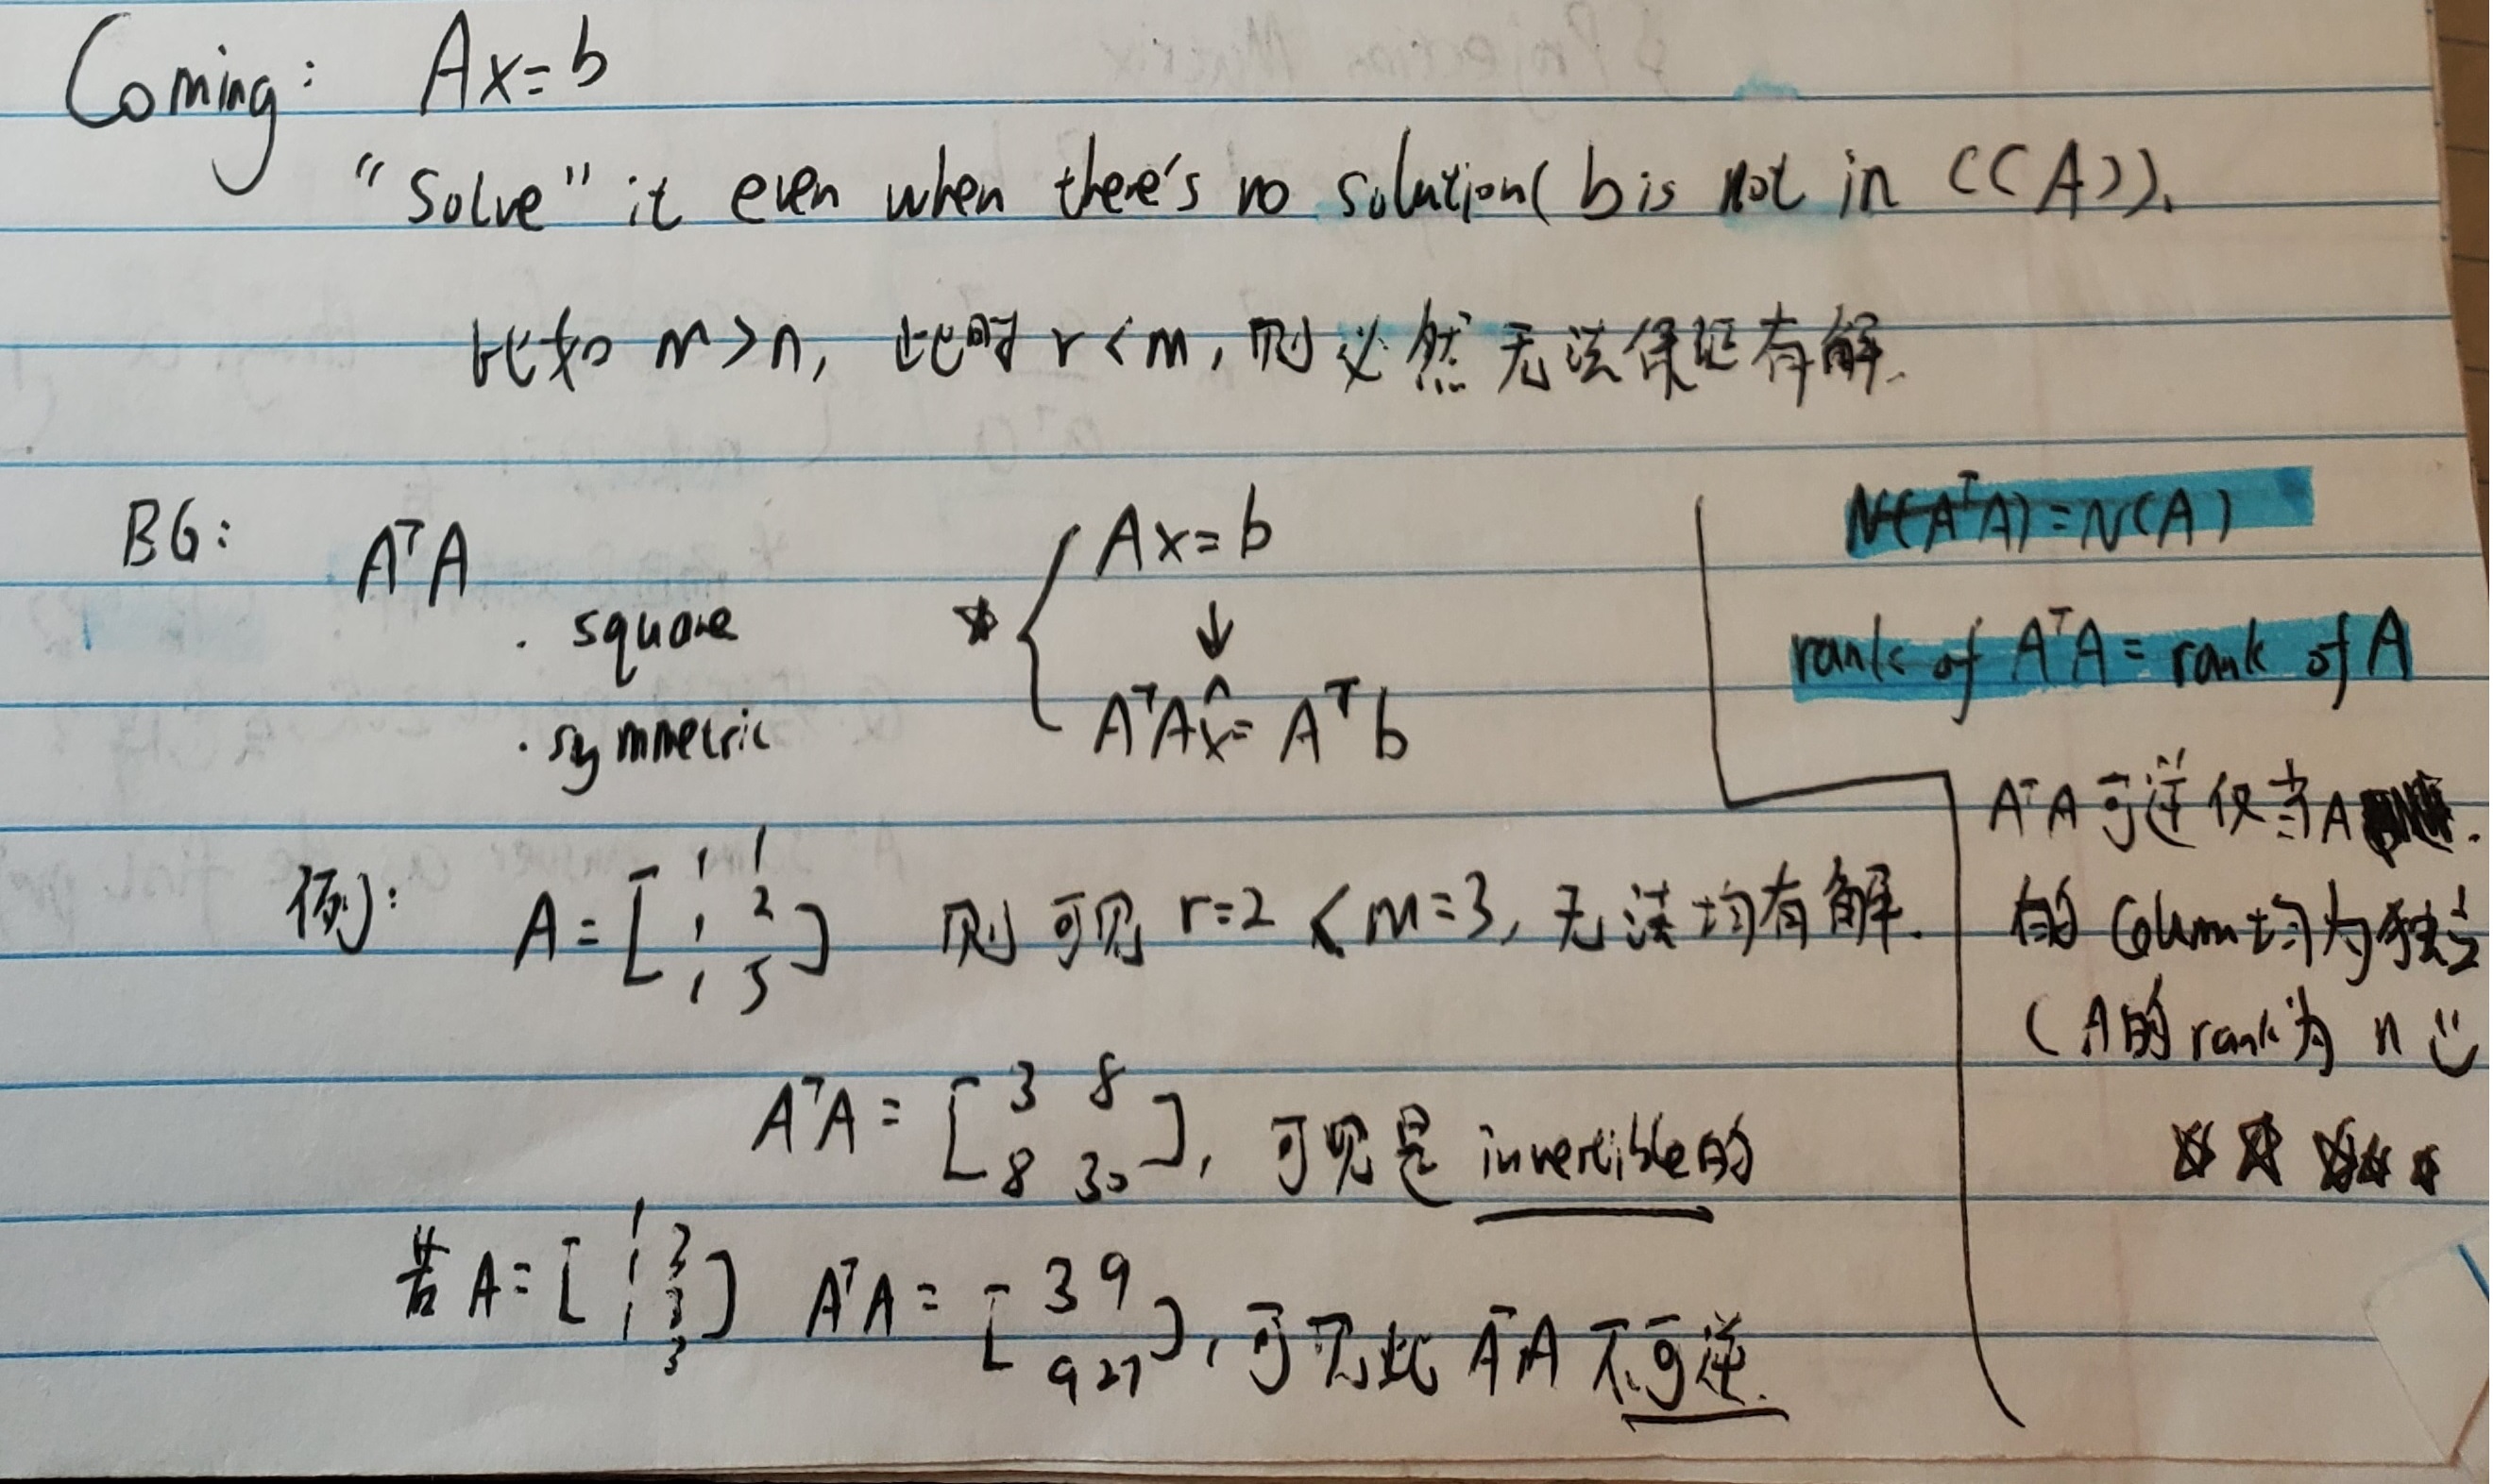 Coming: Ax=b
"Solve" it even when there's no solution( b is not in C(A)).
比如 m>n, 此时 r<m, 则必然无法保证有解.
BG: AᵀA
· square
· symmetric
Ax=b
↓
AᵀAx̂=Aᵀb
N(AᵀA)=N(A)
rank of AᵀA = rank of A
AᵀA可逆仅当A
的 Column均为独立
(A的rank为 n
例: A = [ 1 1
1 2
1 5 ] 则可见 r=2 < m=3, 无法均有解.
AᵀA = [ 3 8
8 30 ], 可见是 invertible的
若 A = [ 1 3
1 3
1 3 ] AᵀA = [ 3 9
9 27 ], 可见此 AᵀA 不可逆.